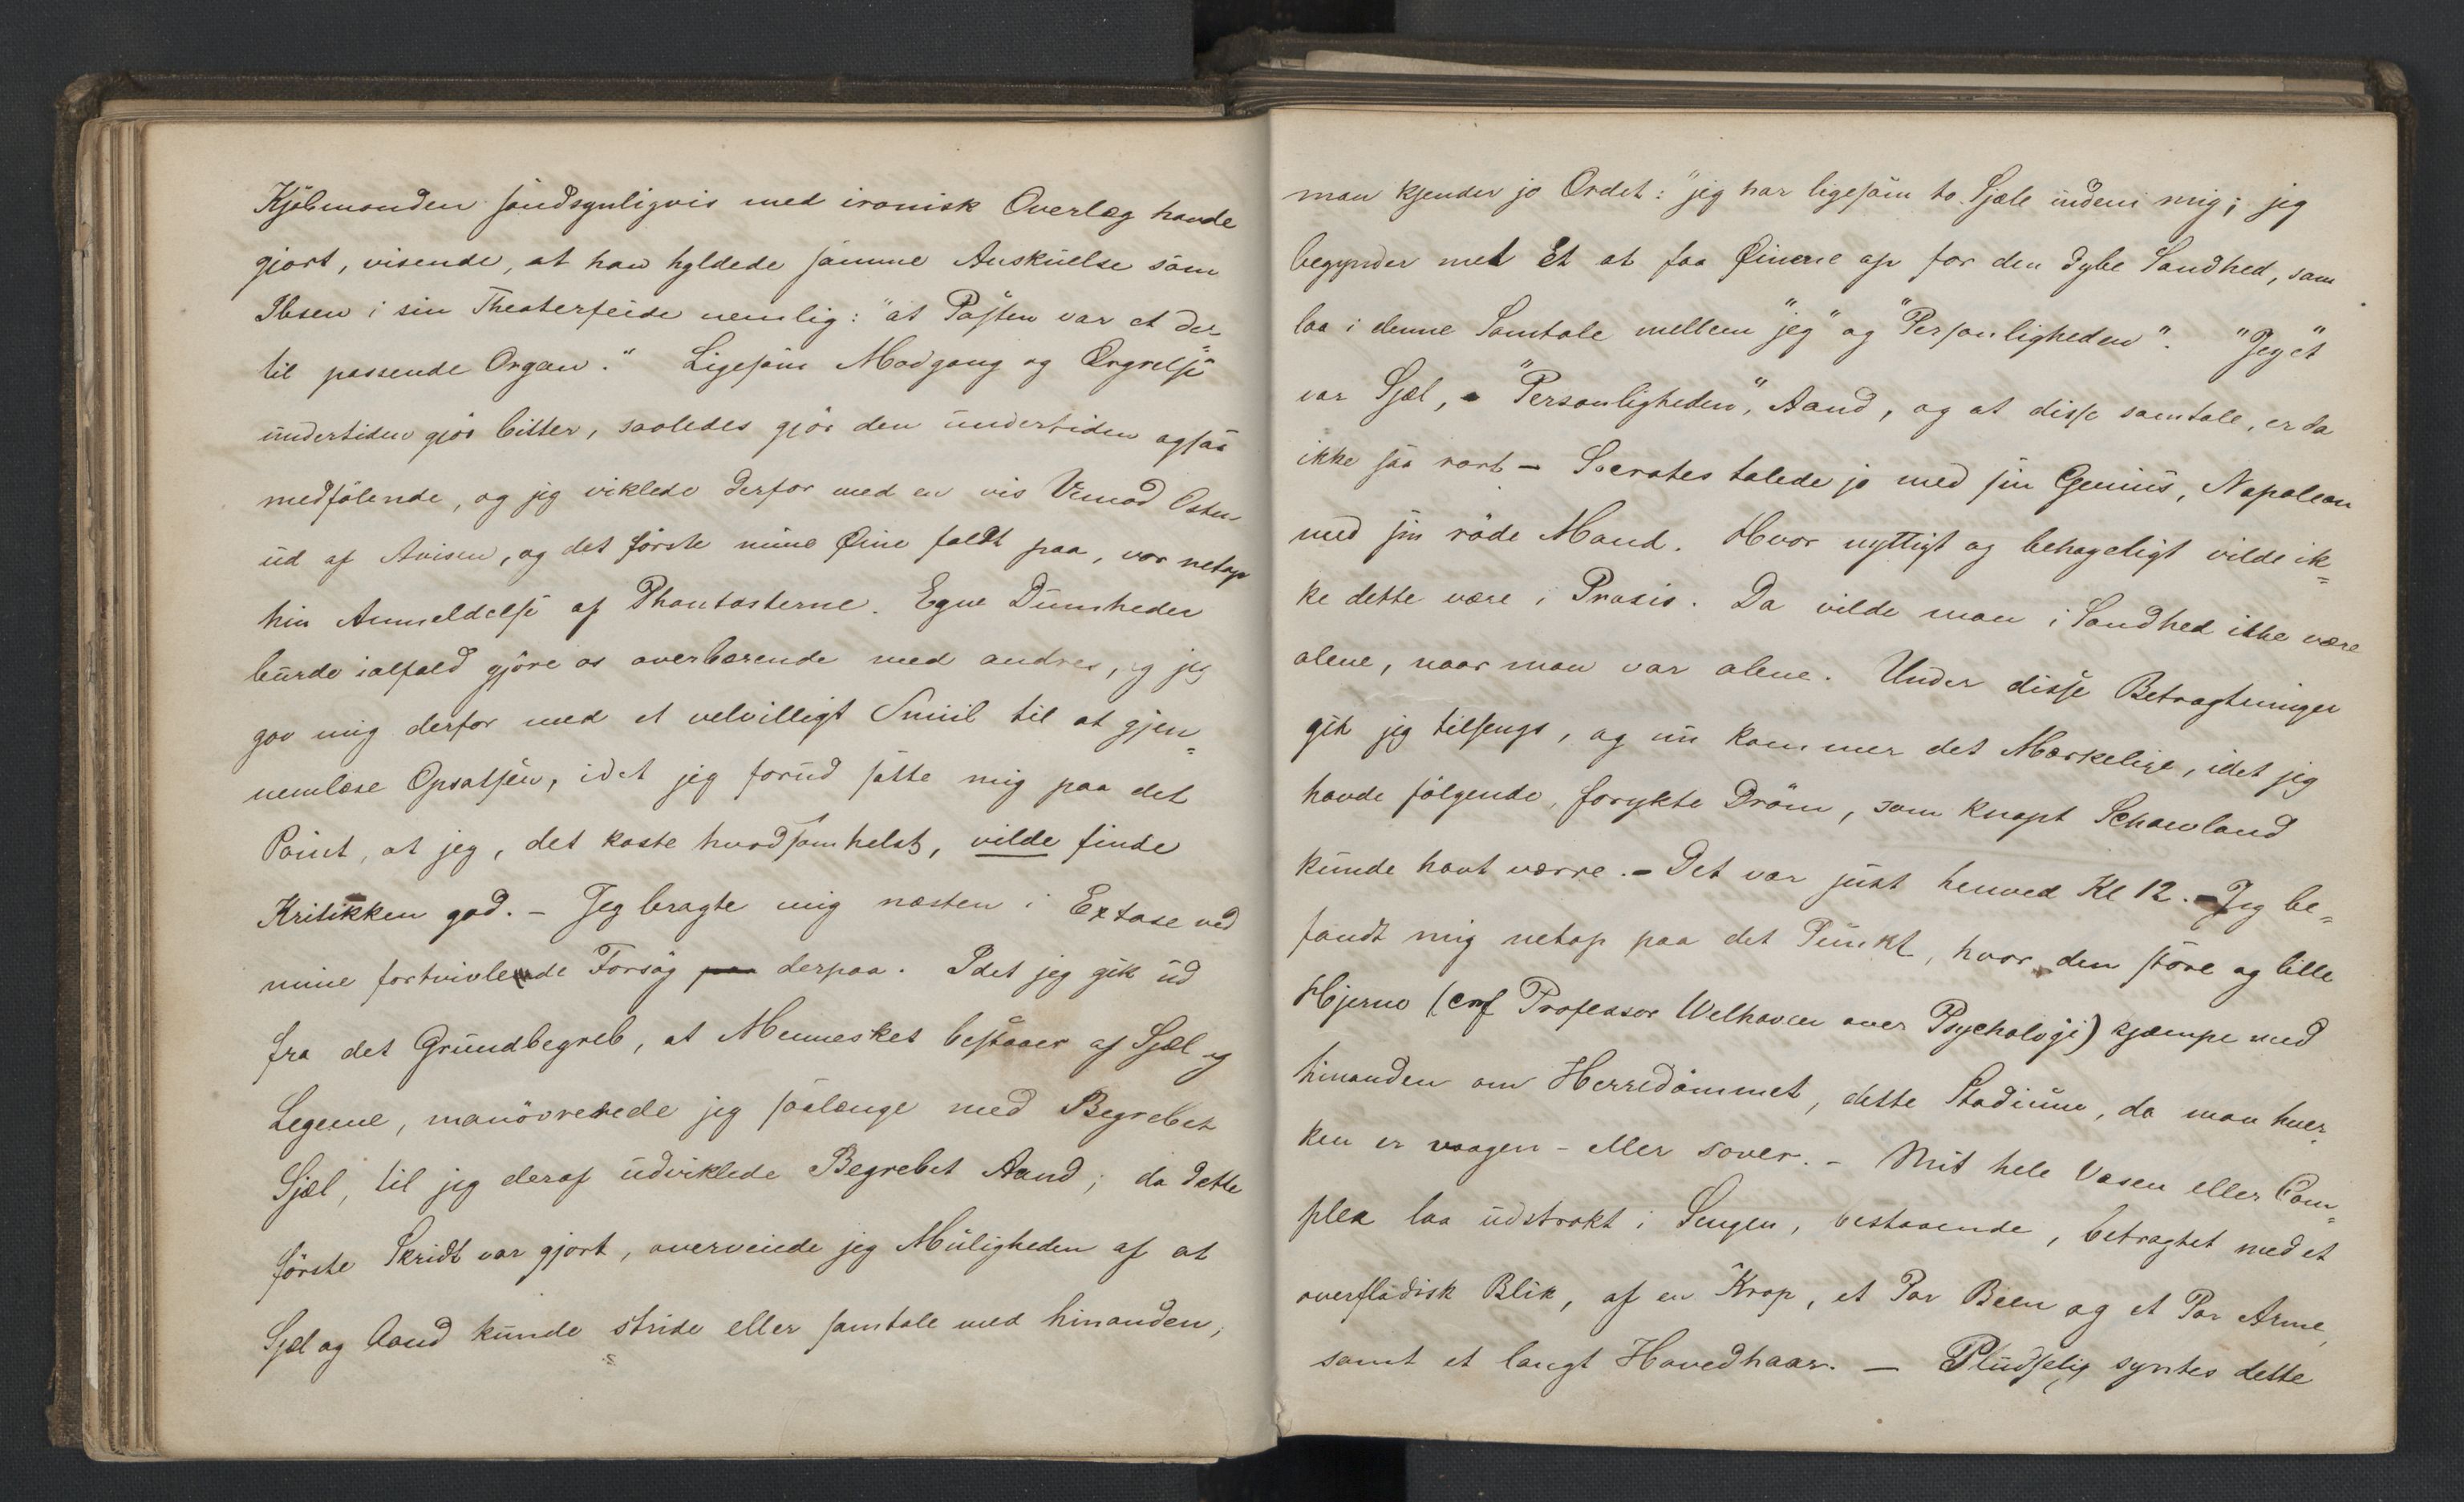 Kjöbmanden sandsynligvis med ironisk Overlæg havde
gjort, visende, at han hyldede samme Anskuelse som
Ibsen i sin Theaterfeide nemlig: "at Posten var et der-
til passende Organ." Ligesom Modgang og Ærgrelse
undertiden gjör bitter, saaledes gjör den undertiden ogsaa
medfölende, og jeg viklede derfor med en vis Vemod Osten
ud af Avisen, og det förste mine Öine faldt paa, var netop
hin Anmeldelse af Phantasterne. Egne Dumheder
burde ialfald gjöre os overbærende med andres, og jeg
gav mig derfor med et velvilligt Smiil til at gjen=
nemlæse Opsatsen, idet jeg forud satte mig paa det
Point, at jeg, det koste hvadsomhelst, vilde finde
Kritikken god. - Jeg bragte mig næsten i Extase ved
mine fortvivlende Forsög paa derpaa. Idet jeg gik ud
fra det Grundbegreb, at Mennesket bestaaer af Sjæl og
Legeme, manövrerede jeg saalænge med Begrebet
Sjæl, til jeg deraf udviklede Begrebet Aand; da dette
förste Skridt var gjort, overveiede jeg Muligheden af at
Sjæl og Aand kunde stride eller samtale med hinanden,
man kjender jo Ordet: "jeg har ligesom to Sjæle indeni mig; jeg
begynder med Et at faa Øinene op for den dybe Sandhed, som
laa i denne Samtale mellem "jeg" og "Personligheden". "Jeg'et"
var Sjæl, "Personligheden", Aand, og at disse samtale, er da
ikke saa rart - Socrates talede jo med sin Genius, Napoleon
med sin röde Mand. Hvor nyttigt og behageligt vilde ik=
ke dette være i Praxis. Da vilde man i Sandhed ikke være
alene, naar man var alene. Under disse Betragtninger
gik jeg tilsengs, og nu kommer det Mærkelige, idet jeg
havde fölgende, forykte Dröm, som knapt Schawland
kunde havt værre. - Det var just henved Kl 12. - Jeg be=
fandt mig netop paa det Punkt, hvor den store og lille
Hjerne (cnf Professor Welhaven over Psychologi) kjæmpe med
hinanden om Herredömmet, dette Stadium, da man hver
ken er vaagen - eller sover. - Mit hele Væsen eller Com=
plex laa udstrakt i Sengen, bestaaende, betragtet med et
overfladisk Blik, af en Krop, et Par Been og et Par Arme,
samt et langt Hovedhaar. - Pludselig syntes dette